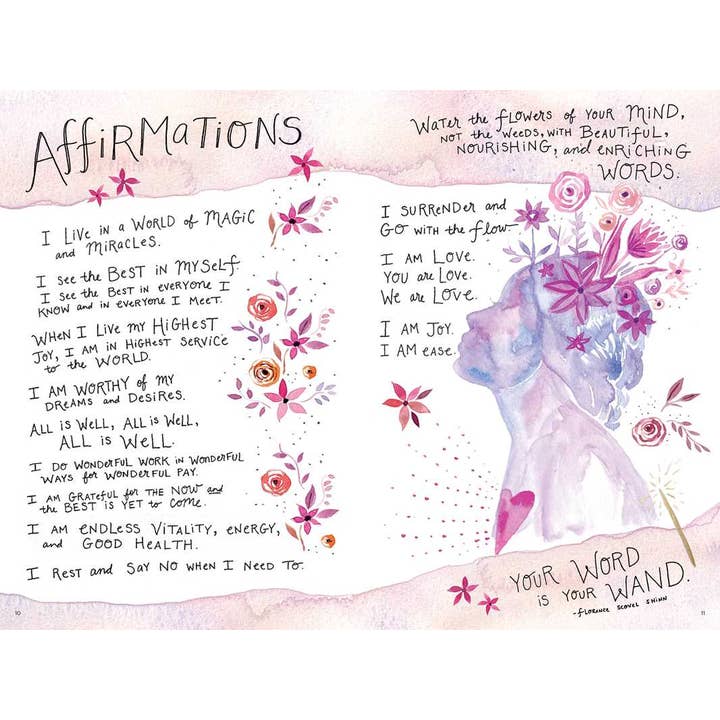 AFFiRMATiONS
I Live iN A WORLD of MAGiC
and MiRACLES.
I see the BEST iN MYSeLF.
I see the BEST iN eveRYONE I
KNOW and iN eveRYONE I MEET.
WHeN I Live my HiGHEST
JOY, I AM iN HiGHEST SeRViCE
to the WORLD.
I AM WORTHY of MY
DReAMS and DeSiRES.
ALL iS WeLL, ALL iS WeLL,
ALL iS WeLL.
I DO WONDERFUL WORK iN WONDERFUL
WAYS FOR WONDERFUL PAY.
I AM GRATEFUL FOR THE NOW and
the BEST iS YET to COME.
I AM eNDLeSS ViTALiTY, eNeRGY,
and GOOD HEALTH.
I REST and SAY NO WHEN I NeeD TO.
10
WATeR the fLOWeRS of YOUR MiND,
NOT the WeeDS, WiTH BeAUTiFUL,
NOURiSHiNG, and eNRiCHiNG
WORDS.
I SURReNDeR and
GO WiTH the fLOW
I AM LOVe.
YOU ARe LOVe.
We ARe LOVe.
I AM JOY.
I AM eASe.
YOUR WORD
iS YOUR WAND.
-FLOReNCe SCOVeL SHiNN
11